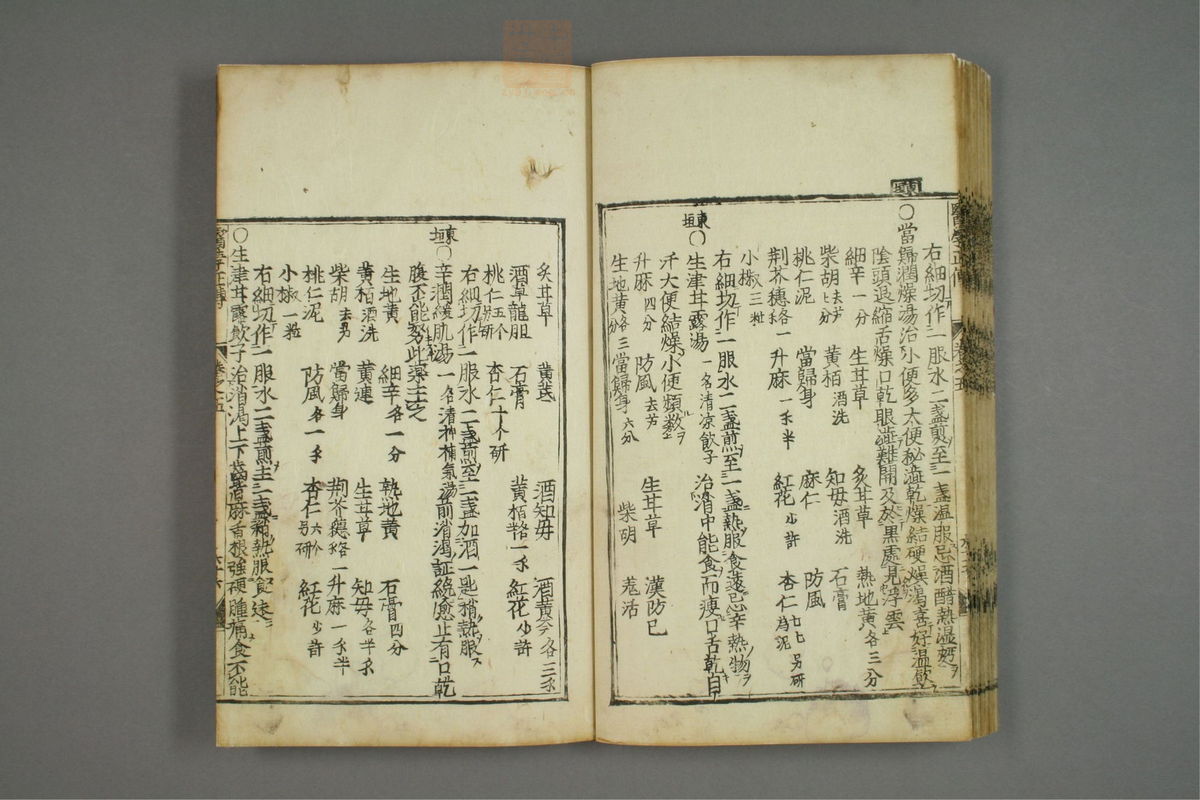 醫學正傳
右細切作一服水二盞煎至一盞温服忌酒醋熱湿麪
東垣
○當歸潤燥湯治小便多大便秘澁乾燥結硬燥渴喜好温飲
陰頭退縮舌燥口乾眼澁難開及於黒處見浮雲
細辛一分 生甘草 炙甘草 熟地黄各三分
柴胡去芦七分 黄栢酒洗 知毋酒洗 石膏
桃仁泥 當歸身 麻仁 防風
荆芥穗各一 升麻一半 紅花少許 杏仁七七另研為泥
小椒三粒
右細切作一服水二盞煎至一盞熱服食遠忌辛熱物
東垣○生津甘露湯 一名清凉飲子 治消中能食而瘦口舌乾自
汗大便結燥小便頻數
升麻四分 防風去芦 生甘草 漢防己
生地黄各三分 當歸身六分 柴胡 羗活
炙甘草 黄芪 酒知毋 酒黄芩各三
酒草龍胆 石膏 黄栢各一 紅花少許
桃仁五个另研 杏仁十个研
右細切作一服水二盞煎至一盞加酒一匙稍熱服
東垣○辛潤緩肌湯 一名清神補氣湯 前消渇証纔愈止有口乾
腹不能努此藥主之
生地黄 細辛各一分 熟地黄 石膏四分
黄栢酒洗 黄連 生甘草 知毋各半
柴胡去芦 當歸身 荆芥穗各一 升麻一半
桃仁泥 防風各一 杏仁六个另研 紅花少許
小椒一粒
右細切作一服水二盞煎至一盞稍熱服食遠
○生津甘露飲子治消渇上下齒皆麻舌根強硬腫痛食不能
醫學正傳